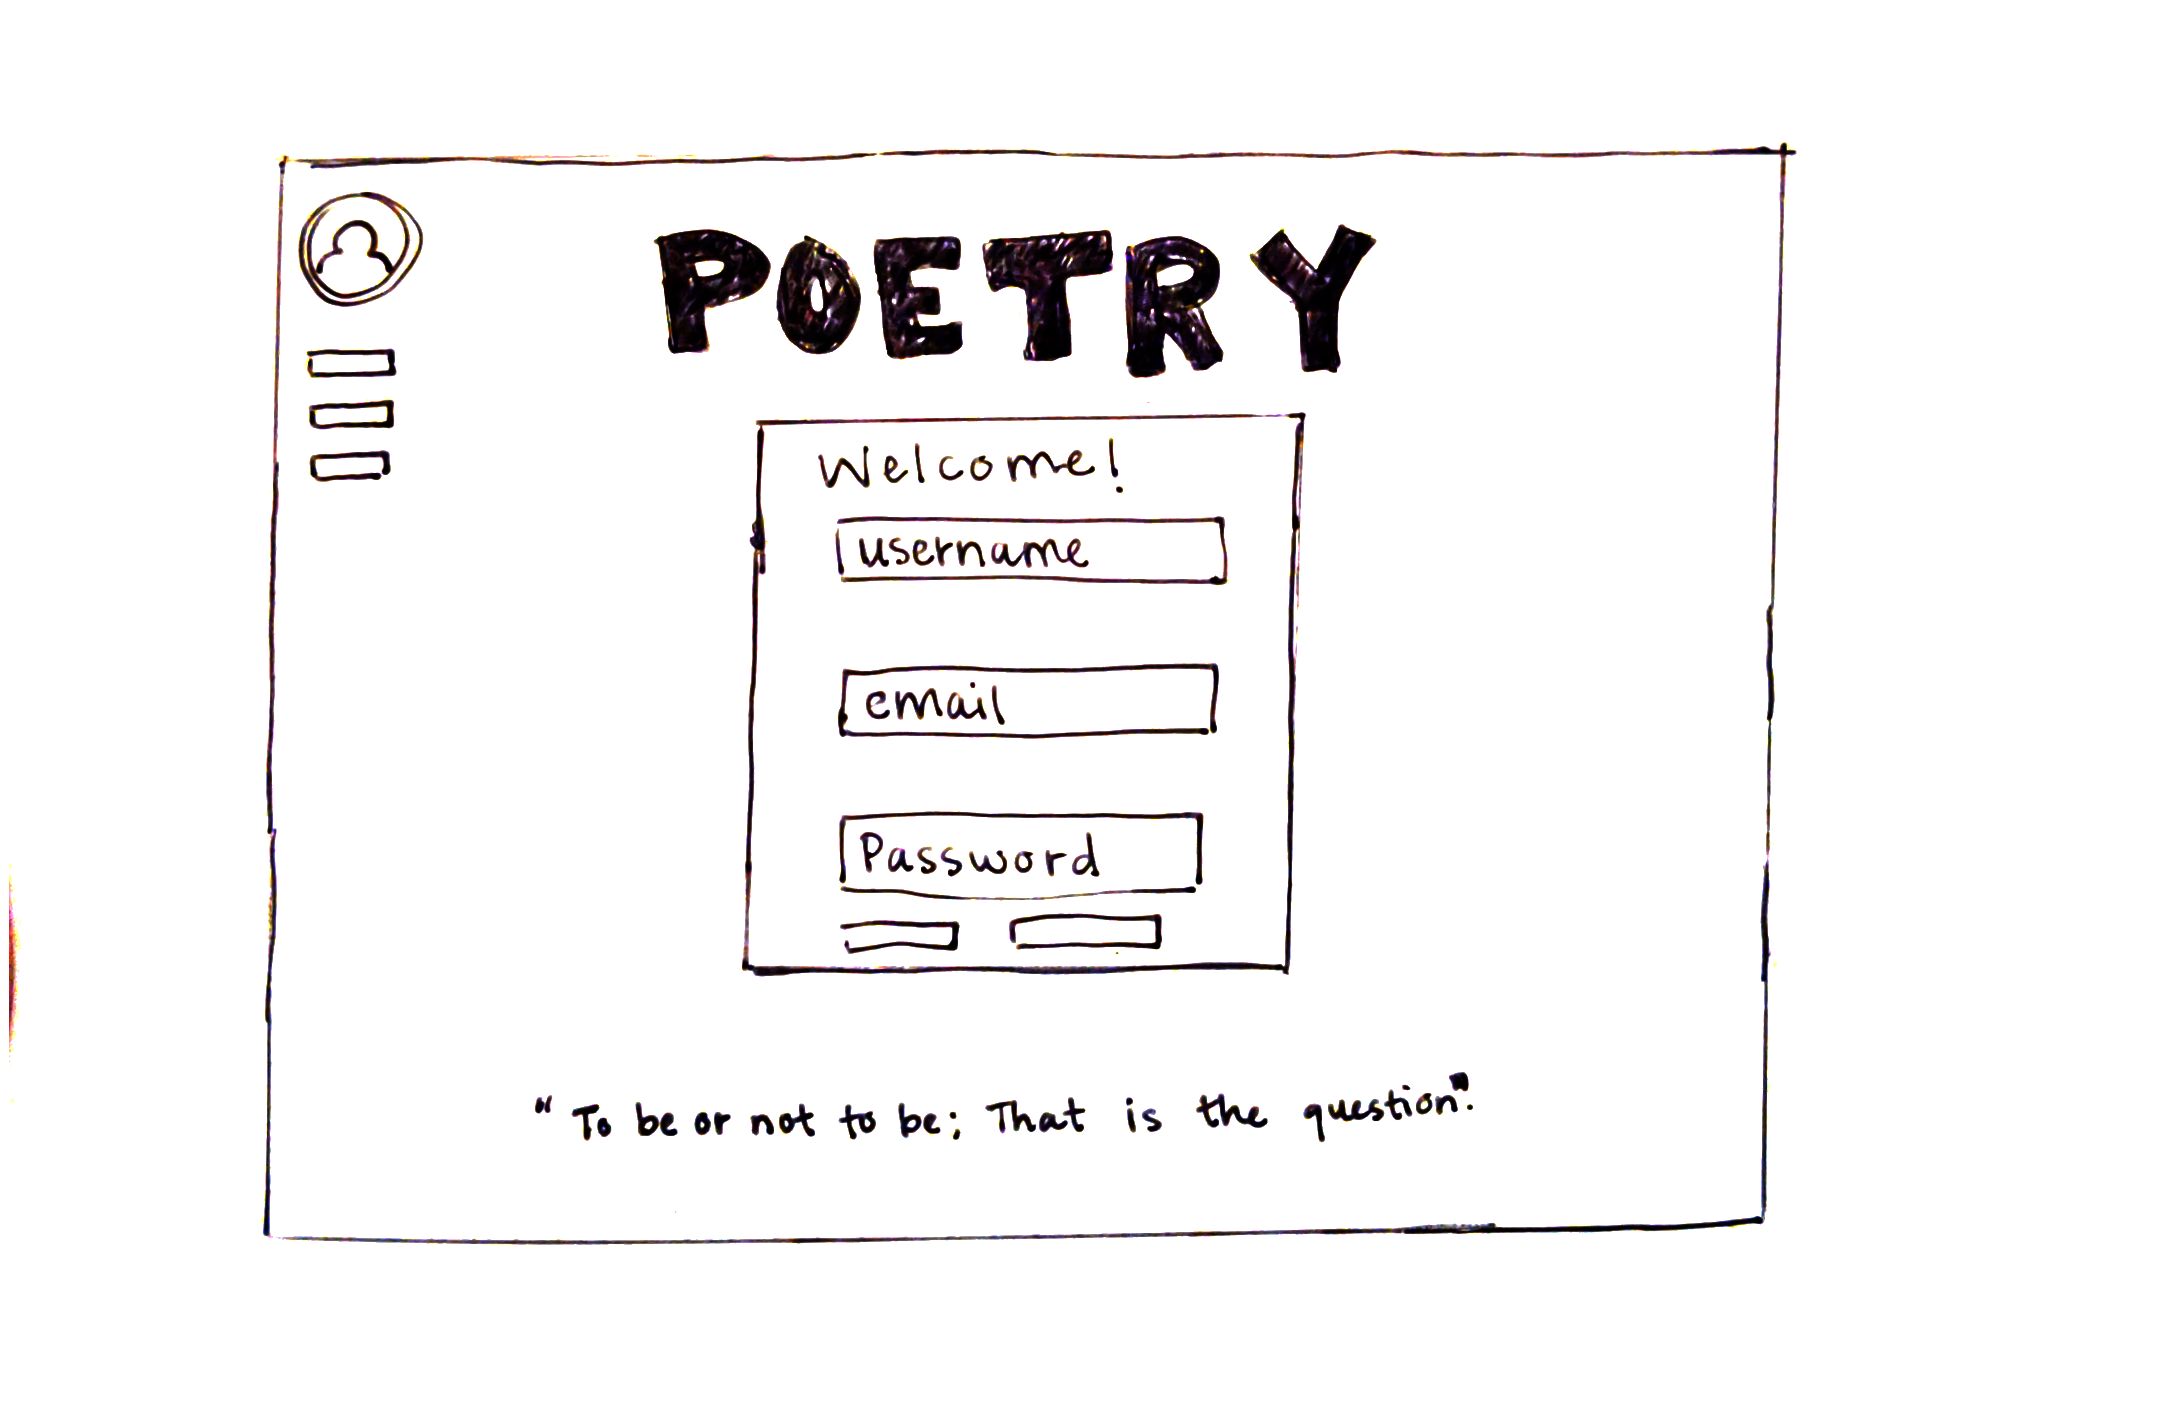 POETRY
Welcome!
username
email
Password
"To be or not to be; That is the question".